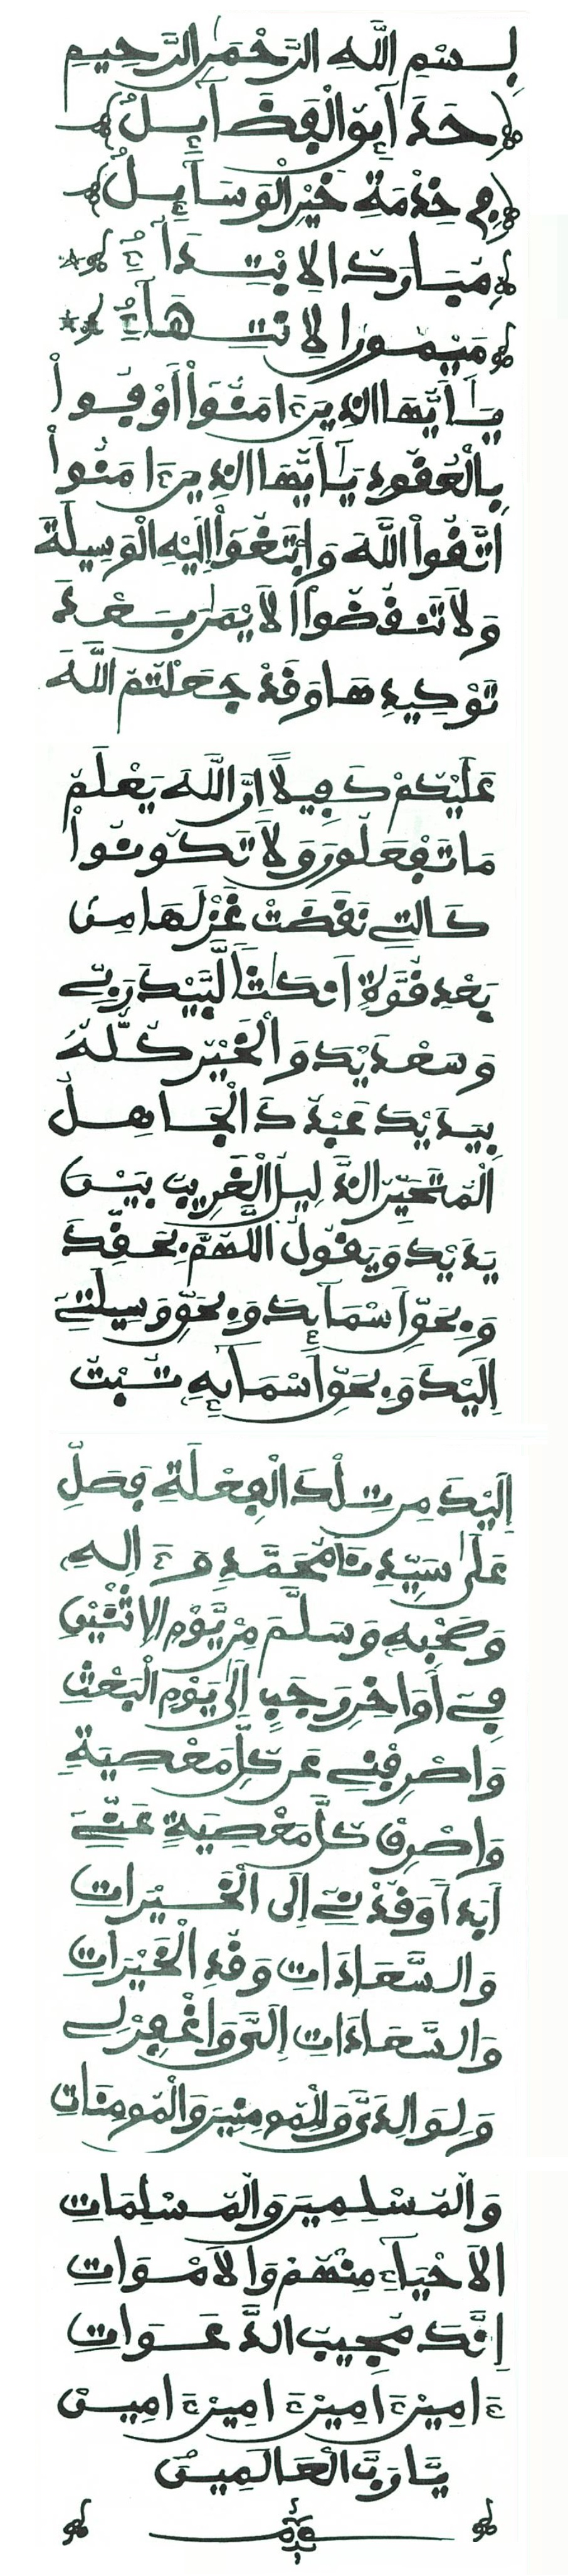 بِسْمِ اللَّهِ الرَّحْمَٰنِ الرَّحِيمِ
حَدَا أَبُو الْفَضَائِلُ
فِي خِدْمَةِ خَيْرِ الْوَسَائِلُ
مُبَارَكُ الِابْتِدَاءُ
مَيْمُونُ الِانْتِهَاءُ
يَا أَيُّهَا الذِينَ ءَامَنُوا أَوْفُوا
بِالْعُقُودِ يَا أَيُّهَا الذِينَ ءَامَنُوا
اتَّقُوا اللَّهَ وَابْتَغُوا إِلَيْهِ الْوَسِيلَةَ
وَلَا تَنقُضُوا الَايْمَٰنَ بَعْدَ
تَوْكِيدِهَا وَقَدْ جَعَلْتُمُ اللَّهَ
عَلَيْكُمْ كَفِيلًا اِنَّ اللَّهَ يَعْلَمُ
مَا تَفْعَلُونَ وَلَا تَكُونُوا
كَالتِي نَقَضَتْ غَزْلَهَا مِن
بَعْدِ قُوَّةٍ اَنكَٰثًا لَبَّيْكَ رَبِّي
وَسَعْدَيْكَ وَالْخَيْرُ كُلُّهُ
بِيَدَيْكَ عَبْدُكَ الْجَاهِلُ
الْمُتَحَيِّرُ الذَّلِيلُ الْغَرِيبُ بَيْنَ
يَدَيْكَ وَيَقُولُ اللَّهُمَّ بِحَقِّكَ
وَبِحَقِّ أَسْمَائِكَ وَبِحَقِّ وَسِيلَتِي
إِلَيْكَ وَبِحَقِّ أَسْمَائِهِ تُبْتُ
إِلَيْكَ مِن تِلْكَ الْفِعْلَةِ فَصَلِّ
عَلَىٰ سَيِّدِنَا مُحَمَّدٍ وَءَالِهِ
وَصَحْبِهِ وَسَلِّمْ مِن يَّوْمِ الِاثْنَيْنِ
فِي أَوَاخِرِ رَجَبٍ إِلَى يَوْمِ الْبَعْثِ
وَاصْرِفْنِي عَن كُلِّ مَعْصِيَةٍ
وَاصْرِفْ كُلَّ مَعْصِيَةٍ عَنِّي
أَبَدًا وَقُدْنِي إِلَى الْخَيْرَاتِ
وَالسَّعَادَاتِ وَقُدِ الْخَيْرَاتِ
وَالسَّعَادَاتِ إِلَيَّ وَاغْفِرْ لِي
وَلِوَالِدَيَّ وَلِلْمُومِنِينَ وَالْمُومِنَاتِ
وَالْمُسْلِمِينَ وَالْمُسْلِمَاتِ
الْأَحْيَاءِ مِنْهُمْ وَالْأَمْوَاتِ
إِنَّكَ مُجِيبُ الدَّعَوَاتِ
ءَامِينَ ءَامِينَ ءَامِينَ ءَامِينَ
يَا رَبَّ الْعَالَمِينَ